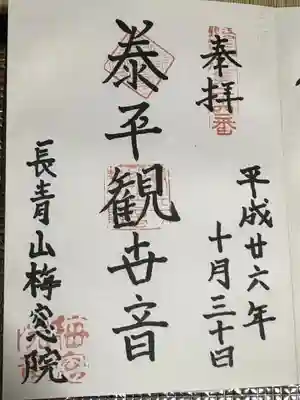 奉拝
平成廿六年
十月三十日
泰平観世音
長青山梅窓院